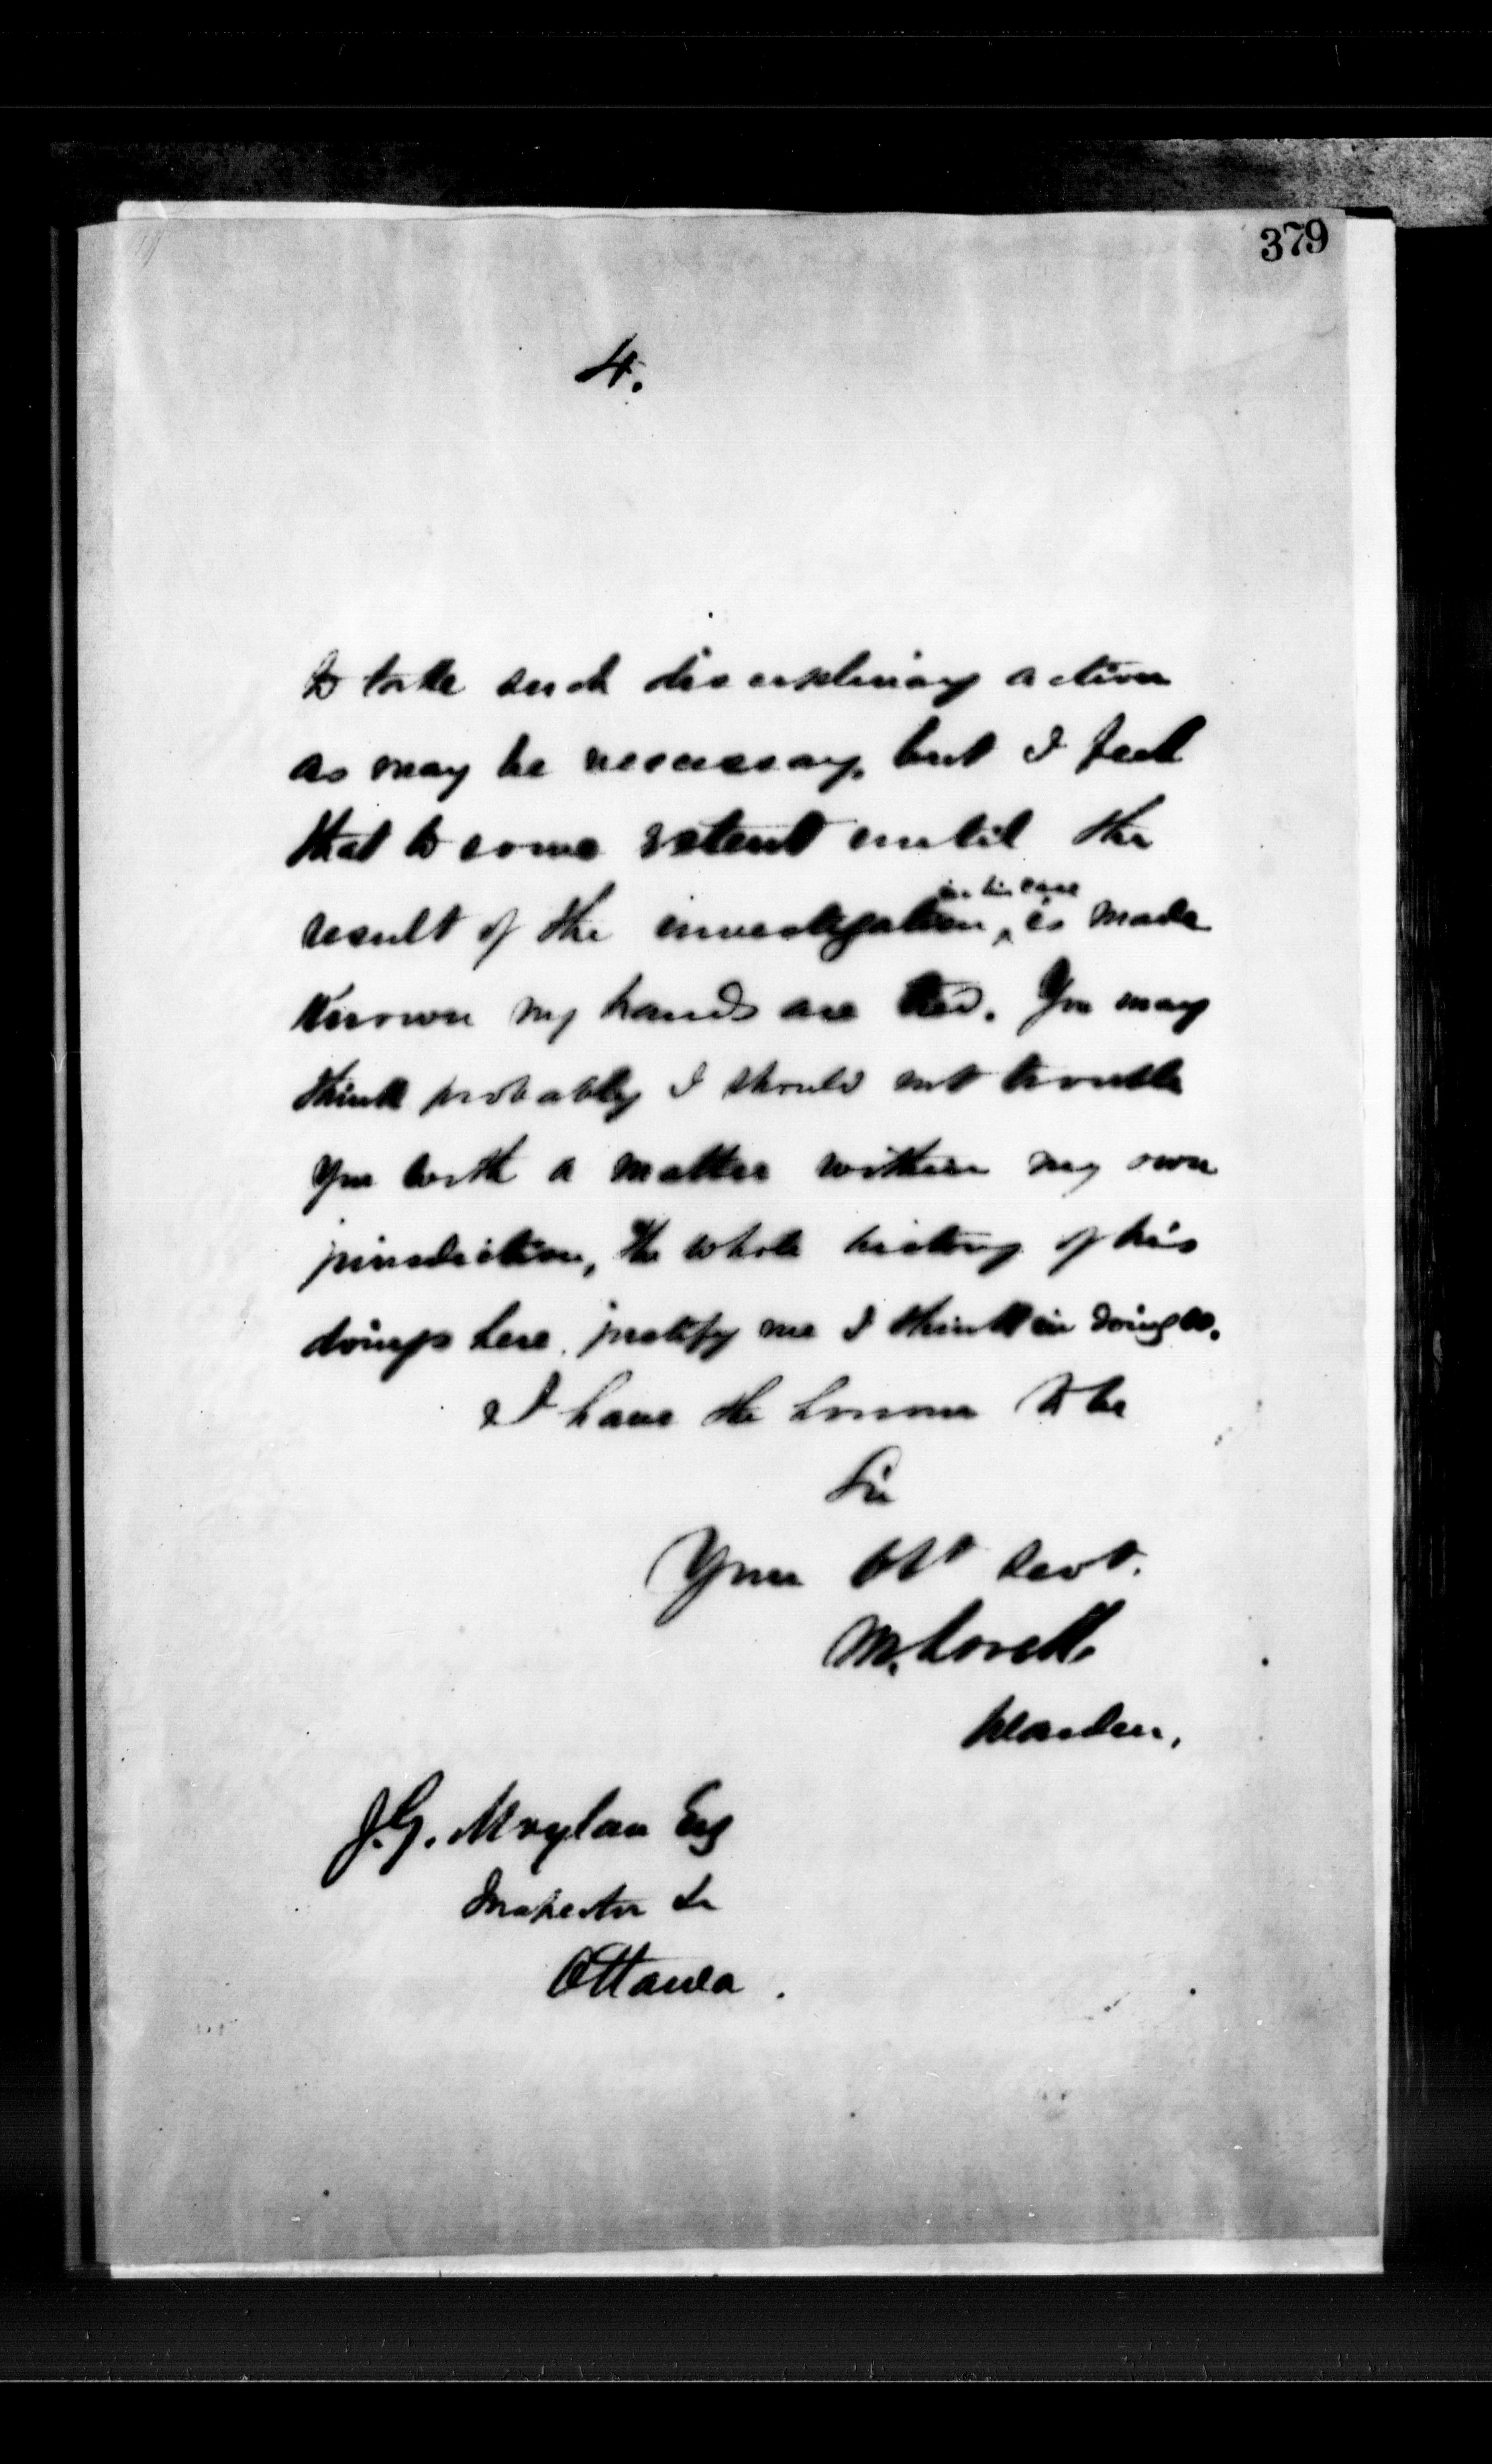 379
4.
to take such disciplinary action
as may be necessary, but I feel
that to some extent until the
result of the investigation, is made
in his case
known my hands are tied. You may
think probably I should not trouble
you with a matter within my own
jurisdiction, the whole history of his
doings here, justify me I think in doing so.
I have the honour to be
Sir
Your Obt Servt.
M. Lavell
Warden.
J.G. Moylan Esq
Inspector &c
Ottawa.